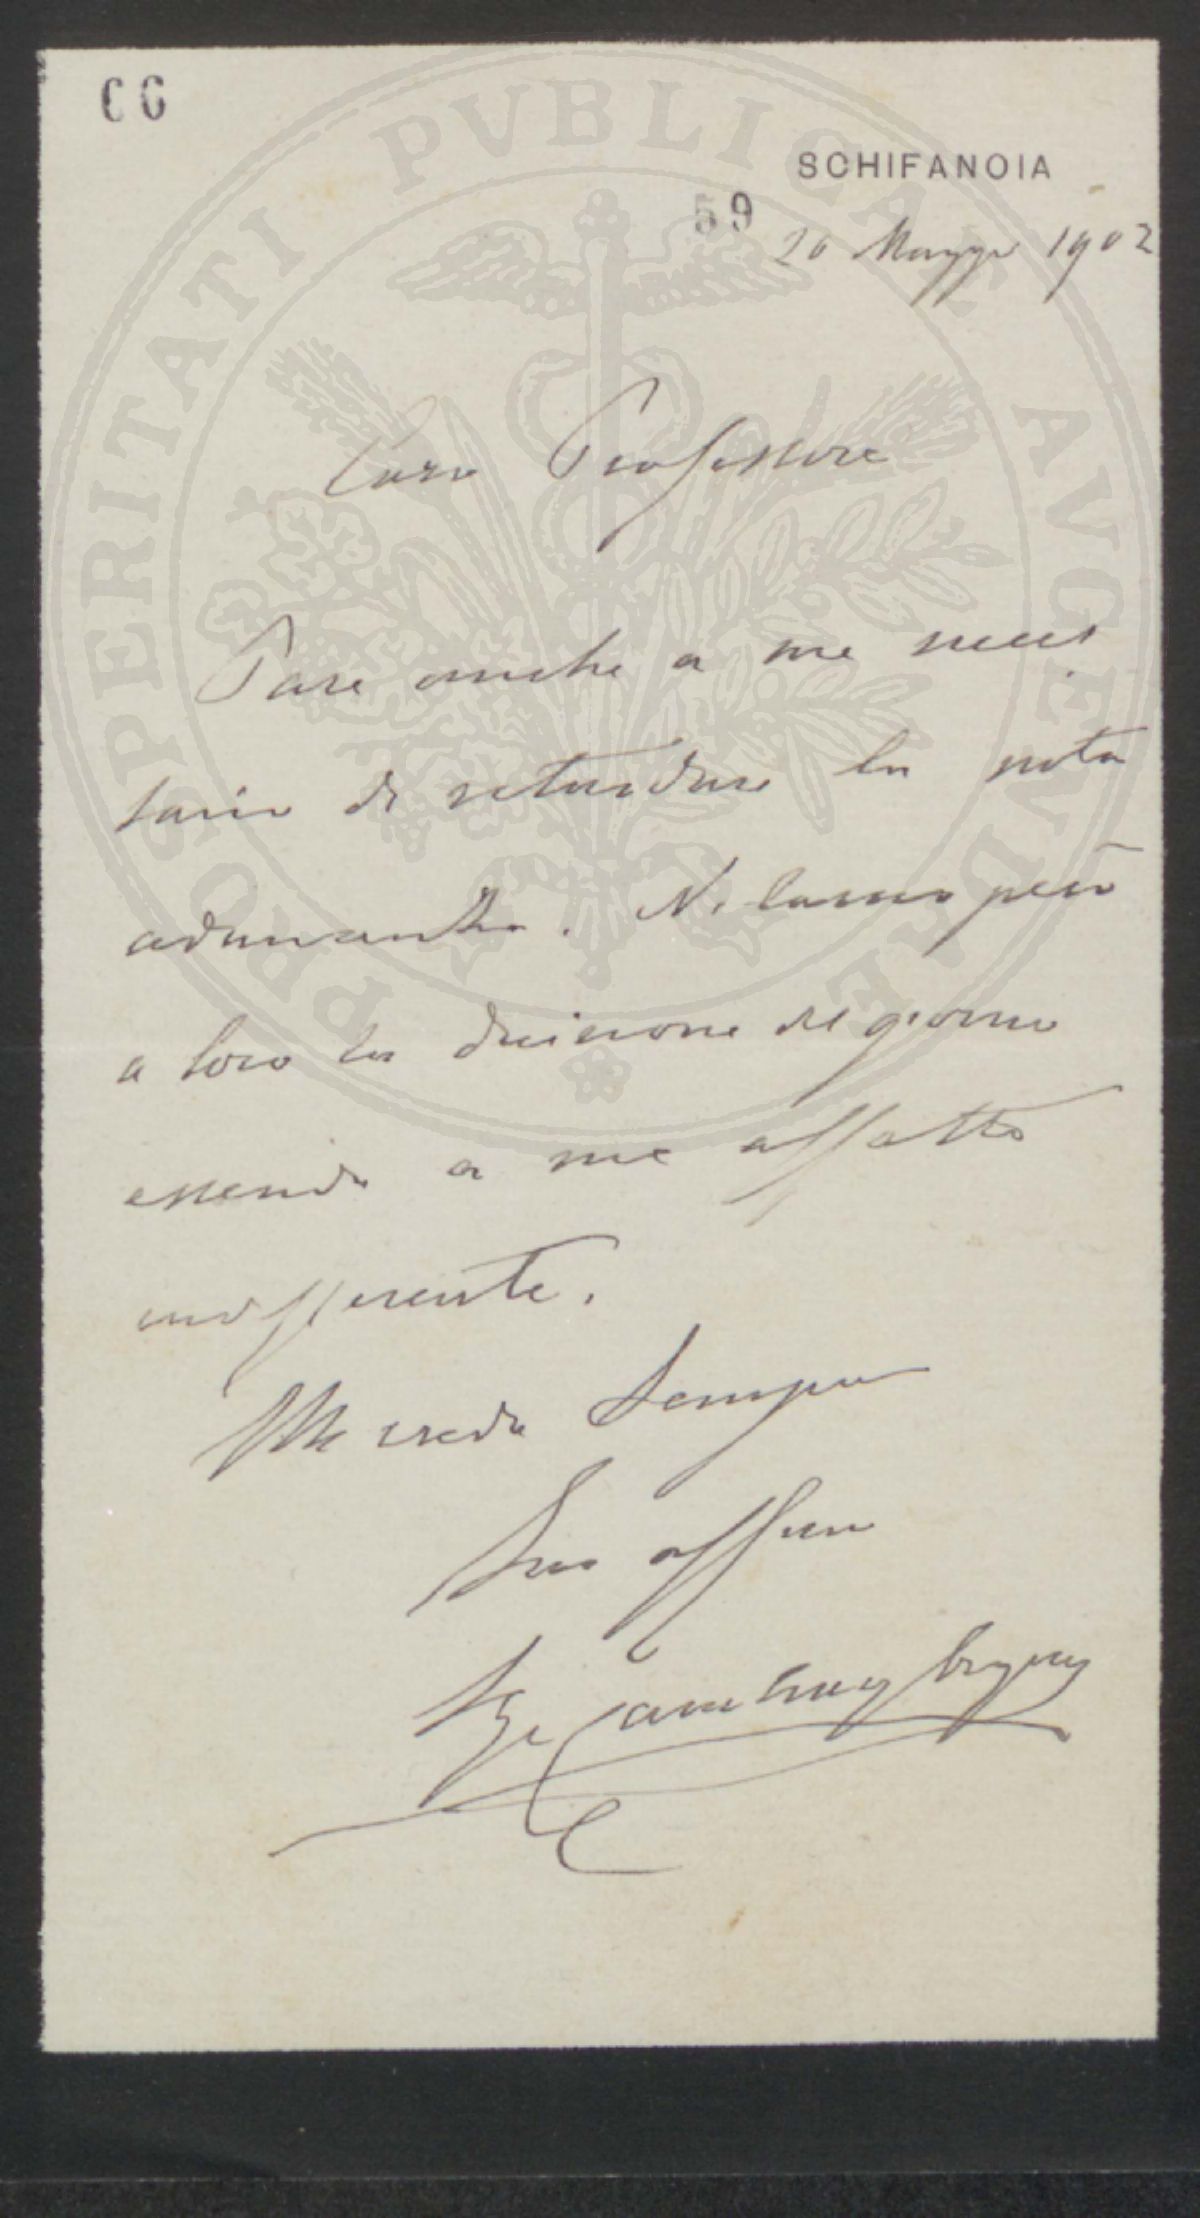 66
SCHIFANOIA
59
20 Maggio 1902
Caro Professore
Pare anche a me neces
sario di ritardare la nota
adunanza. Ne lascio però
a loro la decisione del giorno
essendo a me affatto
indifferente.
Mi creda sempre
Suo affmo
Cambray Digny
PROSPERITATI PVBLICAE AVGENDAE